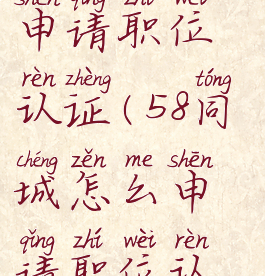 shēn qǐng zhí wèi
申请职位
rèn zhèng tóng
认证(58同
chéng zěn me shēn
城怎么申
qǐng zhí wèi rèn
请职位认